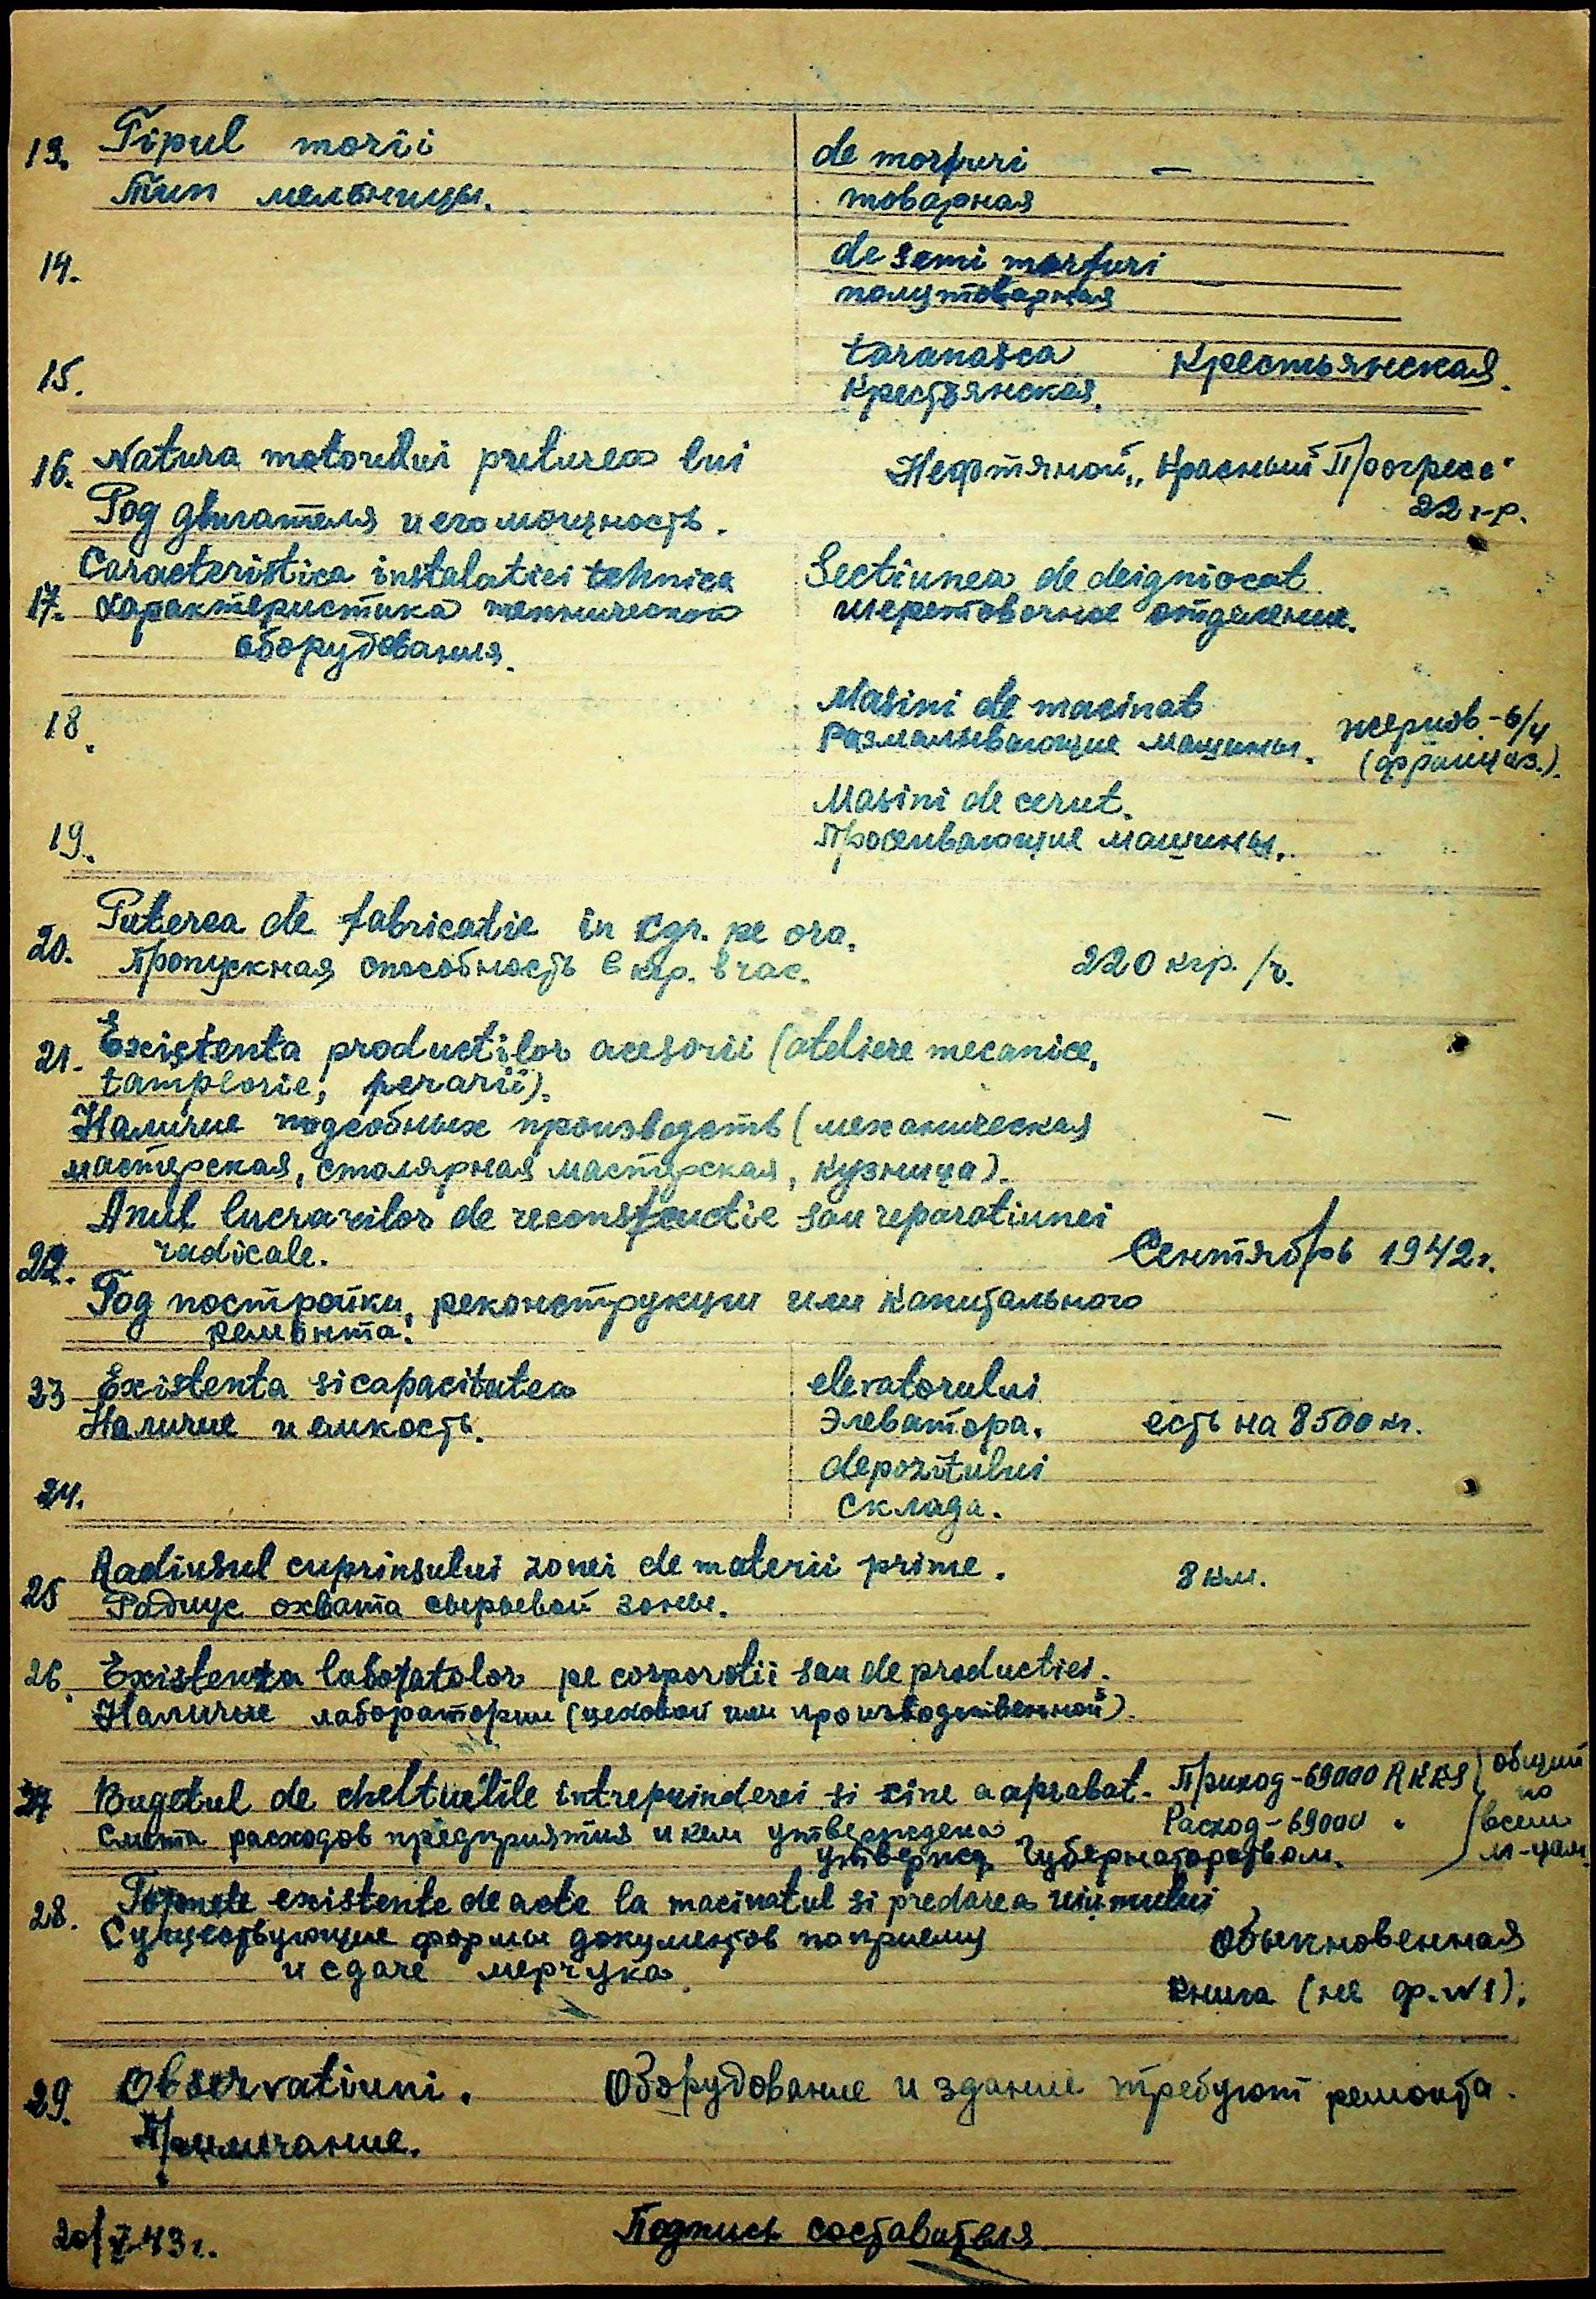 13. Tipul morii
de morfuri —
Тип мельницы.
товарная
14.
de semi morfuri —
полутоварная
15.
taranasca Крестьянская.
Крестьянская.
16. Natura motorului puturea lui
Нефтяной „Красный Прогресс"
22 г-р.
Род двигателя и его мощность.
Caracteristica instalatiei tehnice
Sectiunea de deigniocat
17. Характеристика технической
шеретовочное отделение.
оборудования.
18.
Masini de macinat
Размалывающие машины.
жернов.-6/4
(француз.).
19.
Masini de cerut.
Просеивающие машины.
20. Puterea de fabricatie in Cgr. pe ora.
Пропускная способность в кгр. в час.
220 кгр./ч.
21. Existenta productilor acesorii (ateliere mecanice,
tamplorie, perarii).
Наличие подсобных производств (механическая
мастерская, столярная мастерская, кузница).
—
Anul lucrarilor de reconstructie sau reparatiunei
22. radicale.
Сентябрь 1942г.
Год постройки, реконструкции или капитального
ремонта.
23 Existenta si capacitatea
elevatorului
Наличие и емкость.
Элеватора. есть на 8500 кг.
24.
depozitului
склада.
25 Radiusul cuprinsului zonei de materii prime.
8 км.
Радиус охвата сырьевой зоны.
26. Existenta labotatolor pe corporatii sau de producties.
Наличие лаборатории (цеховой или производственной).
27 Bugetul de cheltuelile intrepuinderei si cine a aprobat.
Приход-69000 RKKS
общий
по
всем
м-цам
Смета расходов предприятия и кем утверждена
Расход-69000 "
Утвержд. Губернаторством.
28. existente de acte la macinatul si predarea uiumului
Существующие формы документов по приему
и сдаче мерчука.
Обыкновенная
книга (не ф. №1).
29. Observatiuni.
Оборудование и здание требуют ремонта.
Примечание.
20/V 43г.
Подпись составителя